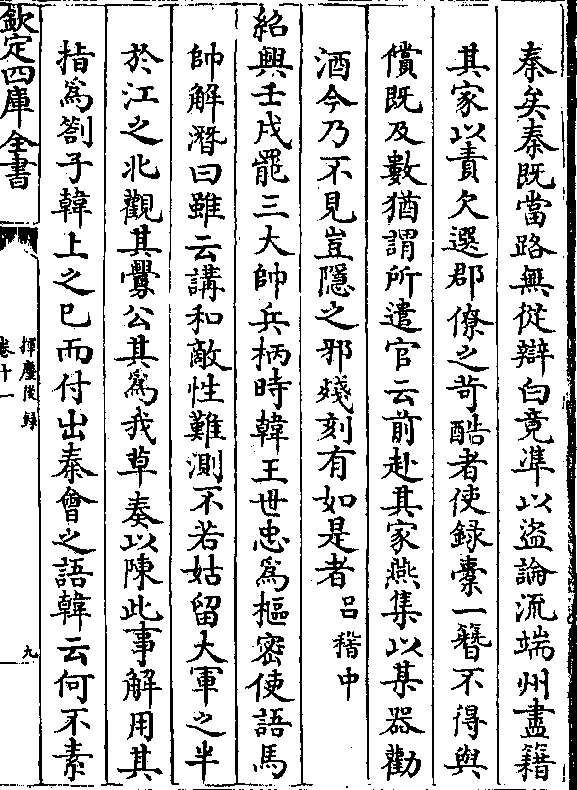 秦矣秦既當路無從辯白竟准以盜論流端州盡籍
其家以責欠選郡僚之苛酷者使録橐一簪不得與
償既及數猶謂所遣官云前赴其家燕集以某器勸
酒今乃不見豈隱之邪殘刻有如是者吕稽中
紹興壬戌罷三大帥兵柄時韓王世忠為樞密使語馬
帥解潛曰雖云講和敵性難測不若姑留大軍之半
於江之北觀其釁公其為我草奏以陳此事解用其
指為劄子韓上之已而付出秦會之語韓云何不素
欽定四庫全書
揮麈後録
卷十一
九